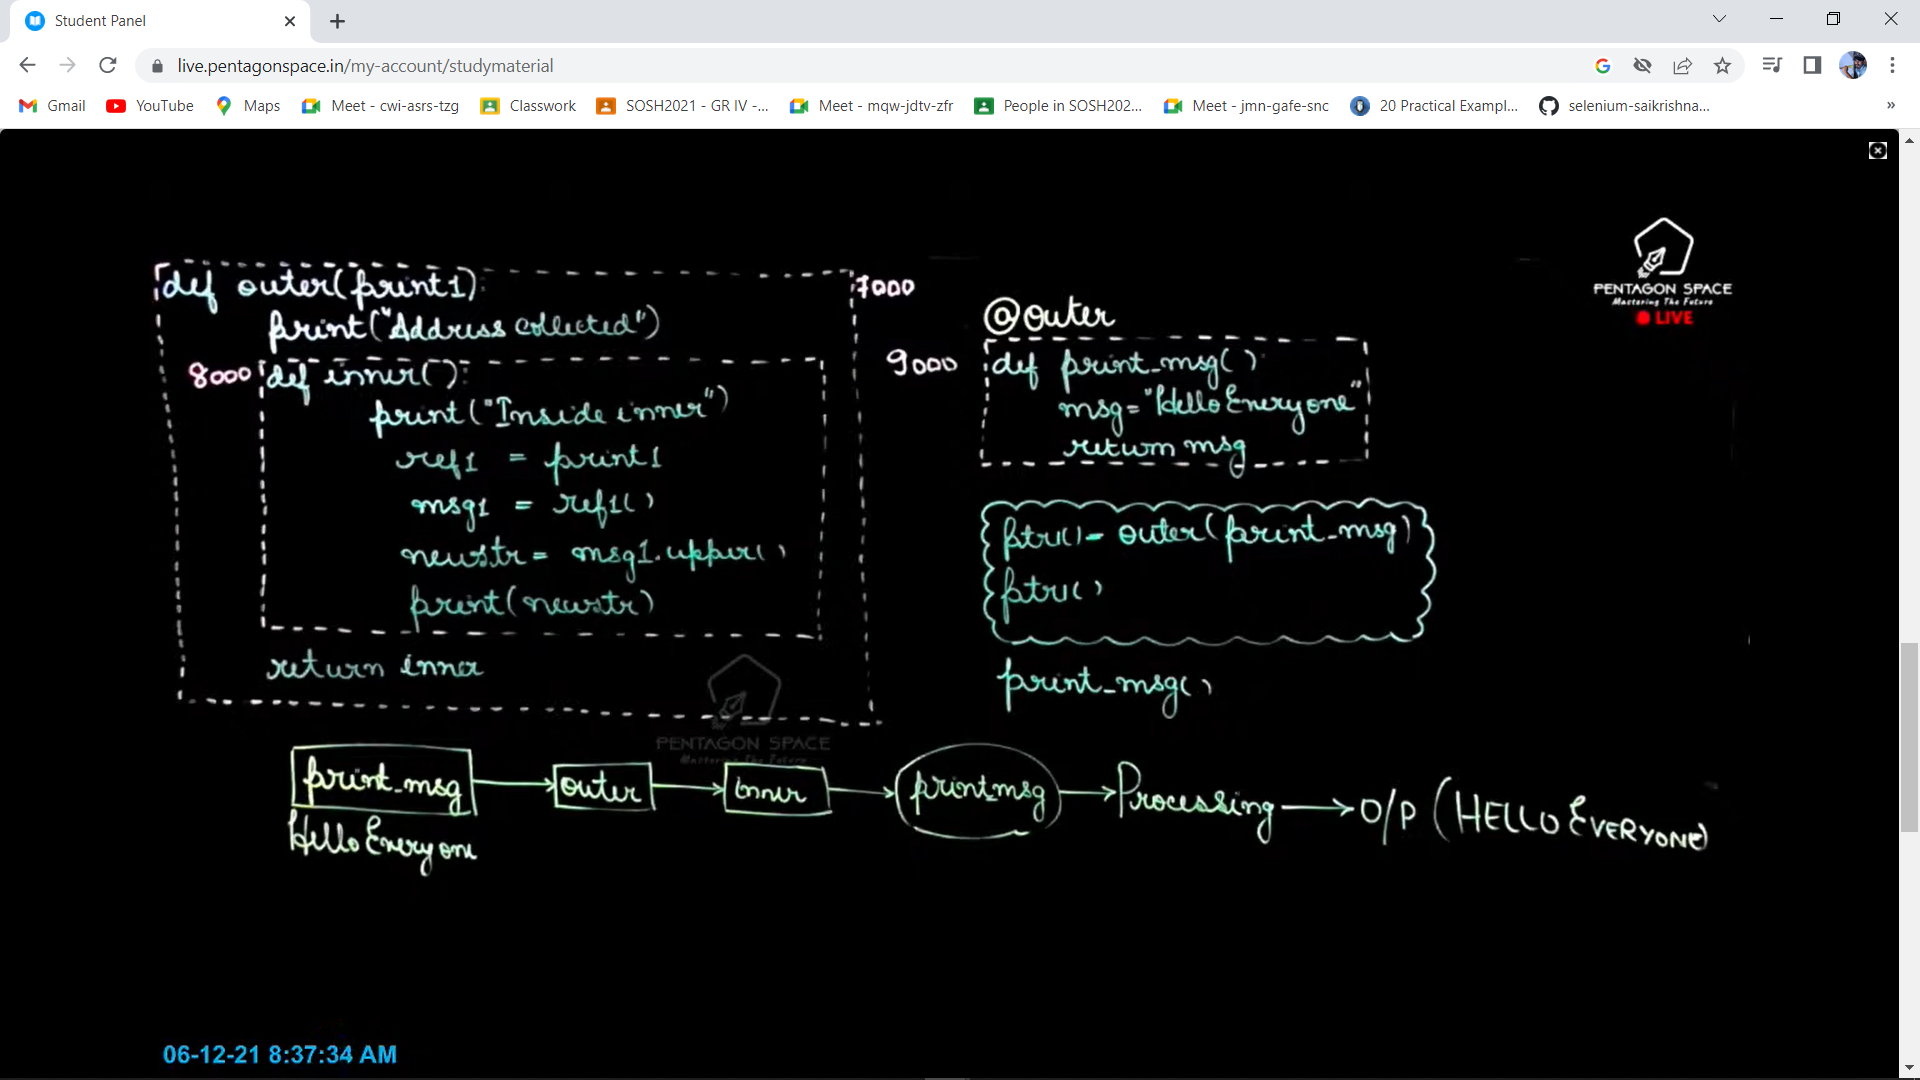 Student Panel
live.pentagonspace.in/my-account/studymaterial
Gmail
YouTube
Maps
Meet - cwi-asrs-tzg
Classwork
SOSH2021 - GR IV -...
Meet - mqw-jdtv-zfr
People in SOSH202...
Meet - jmn-gafe-snc
20 Practical Exampl...
selenium-saikrishna...
»
PENTAGON SPACE
Mastering The Future
LIVE
def outer(print1):
7000
print("Address collected")
8000
def inner():
print("Inside inner")
ref1 = print1
msg1 = ref1()
newstr = msg1.upper()
print(newstr)
return inner
@outer
9000
def print_msg()
msg="Hello Everyone"
return msg
ptr()= outer(print_msg)
ptr()
print_msg()
PENTAGON SPACE
Mastering The Future
print_msg
outer
inner
printmsg
Processing
O/P (HELLO EVERYONE)
Hello Everyone
06-12-21 8:37:34 AM